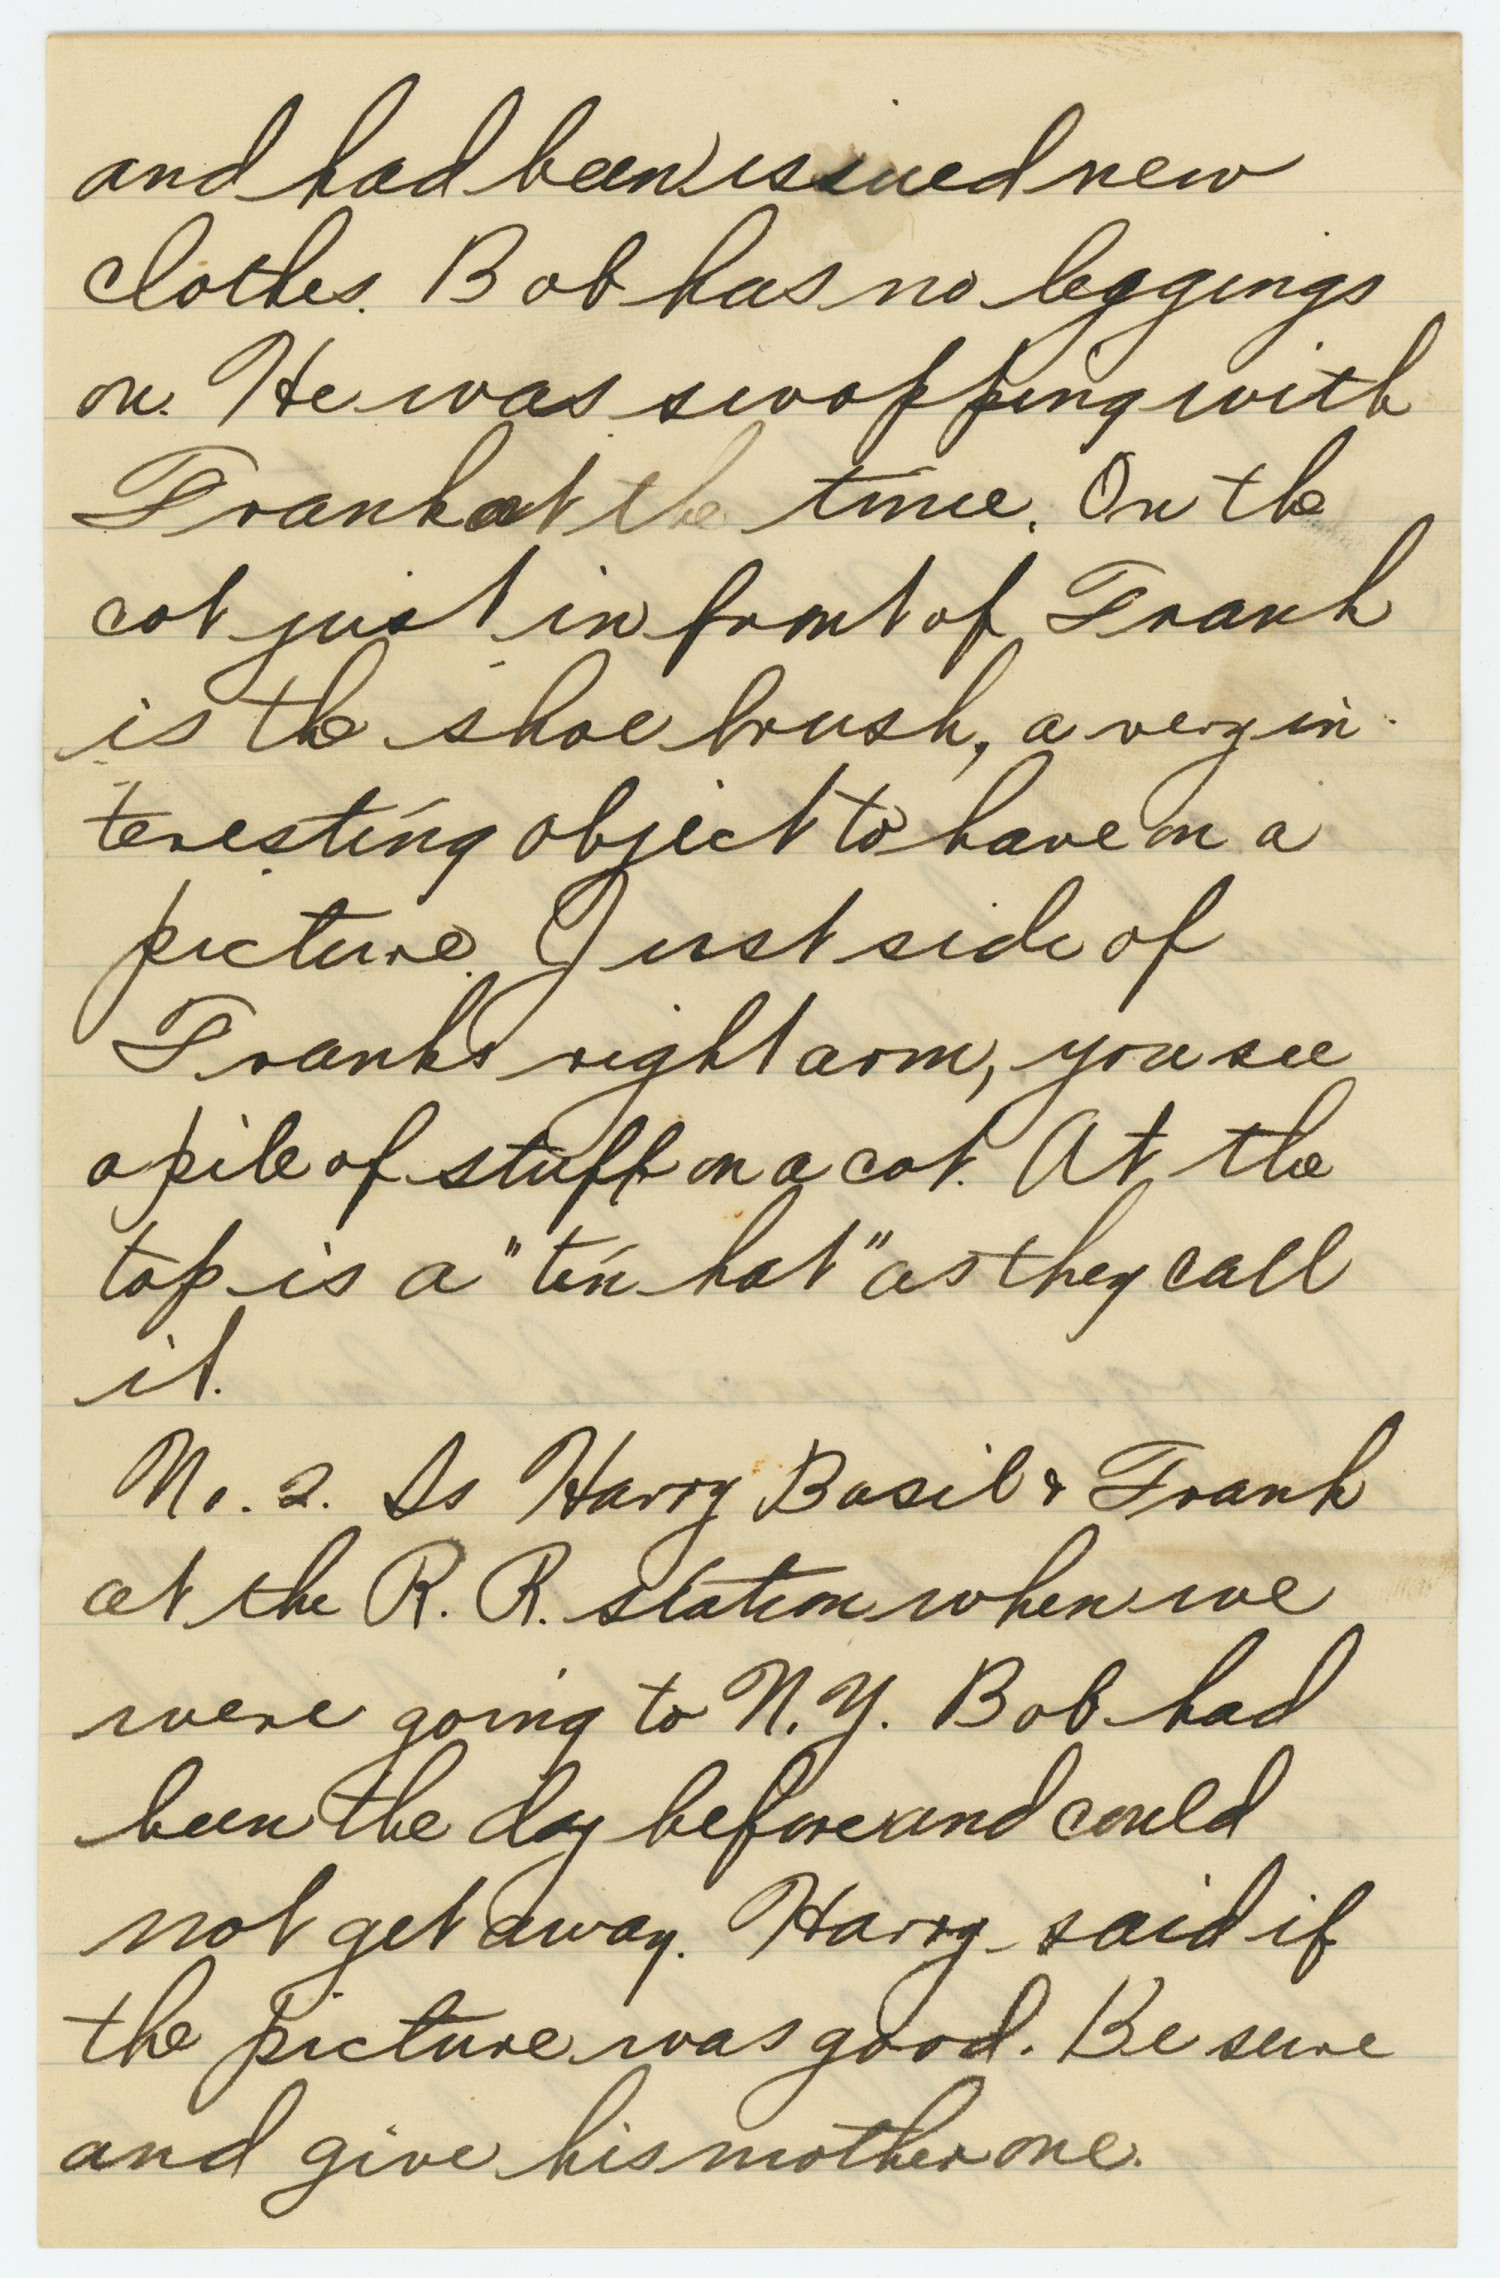 and had been issued new
clothes. Bob has no leggings
on. He was swopping with
Frank at the time. On the
cot just in front of Frank
is the shoe brush, a very in-
teresting object to have on a
picture. Just side of
Franks right arm, you see
a pile of stuff on a cot. At the
top is a "tin hat" as they call
it.
No. 2. Is Harry Basil & Frank
at the R. R. station when we
were going to N. Y. Bob had
been the day before and could
not get away. Harry said if
the picture was good. Be sure
and give his mother one.